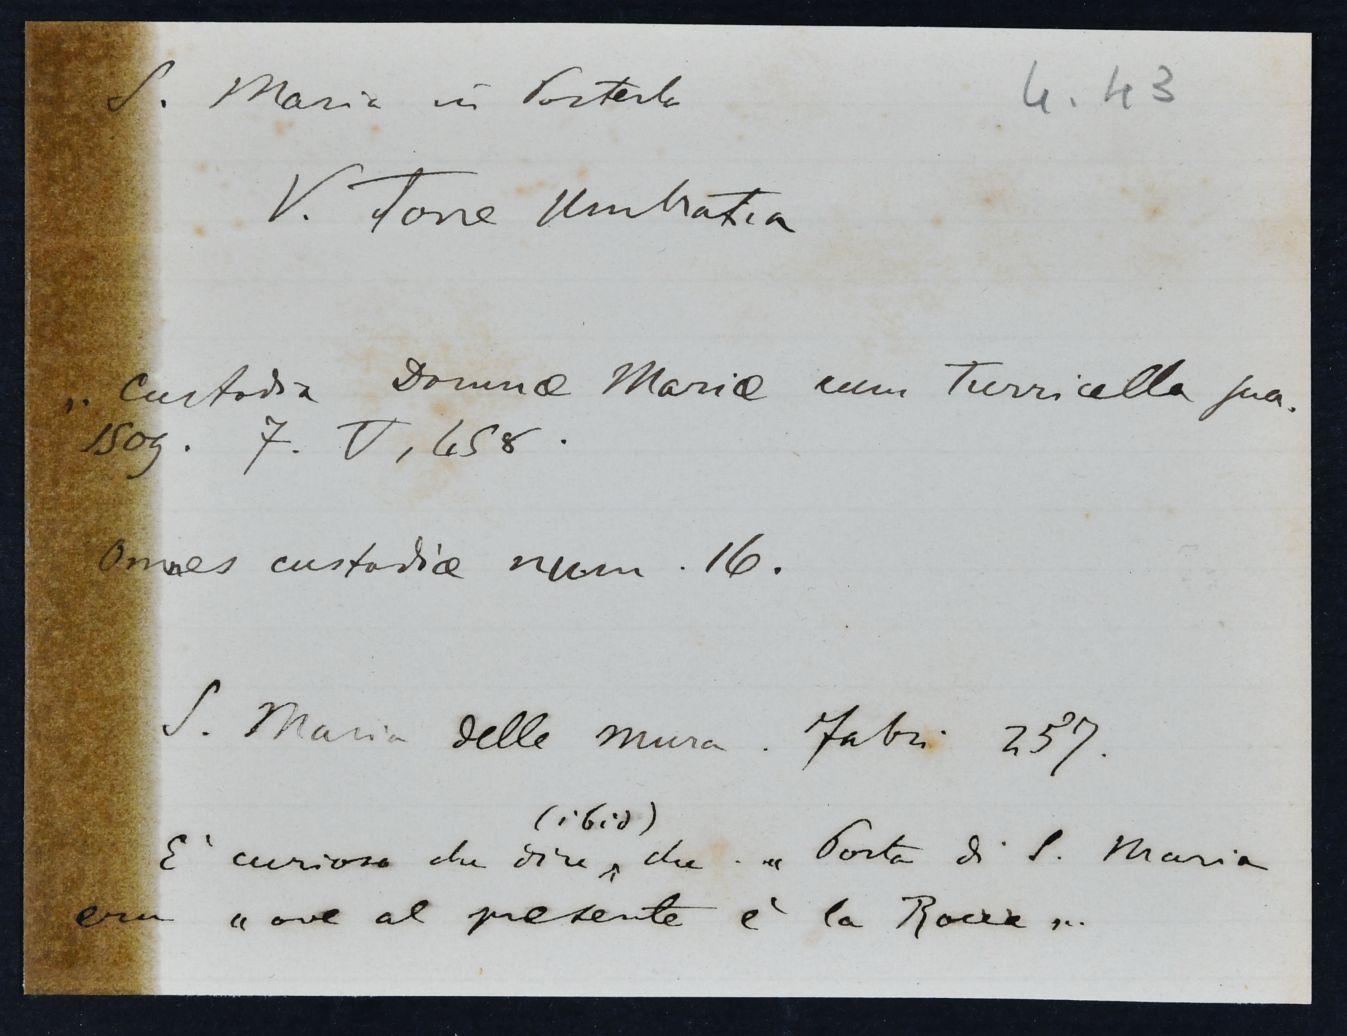 S. Maria in Posterla
4.43
V. Torre Umbratica
„ Custodia Domnæ Mariæ cum Turricella sua.
1509. 7. V, 458.
Omnes custodiæ num. 16.
S. Maria delle mura. Fabri 257.
(ibid)
E' curioso che dice ^ che " Porta di S. Maria
era " ove al presente è la Rocca ".